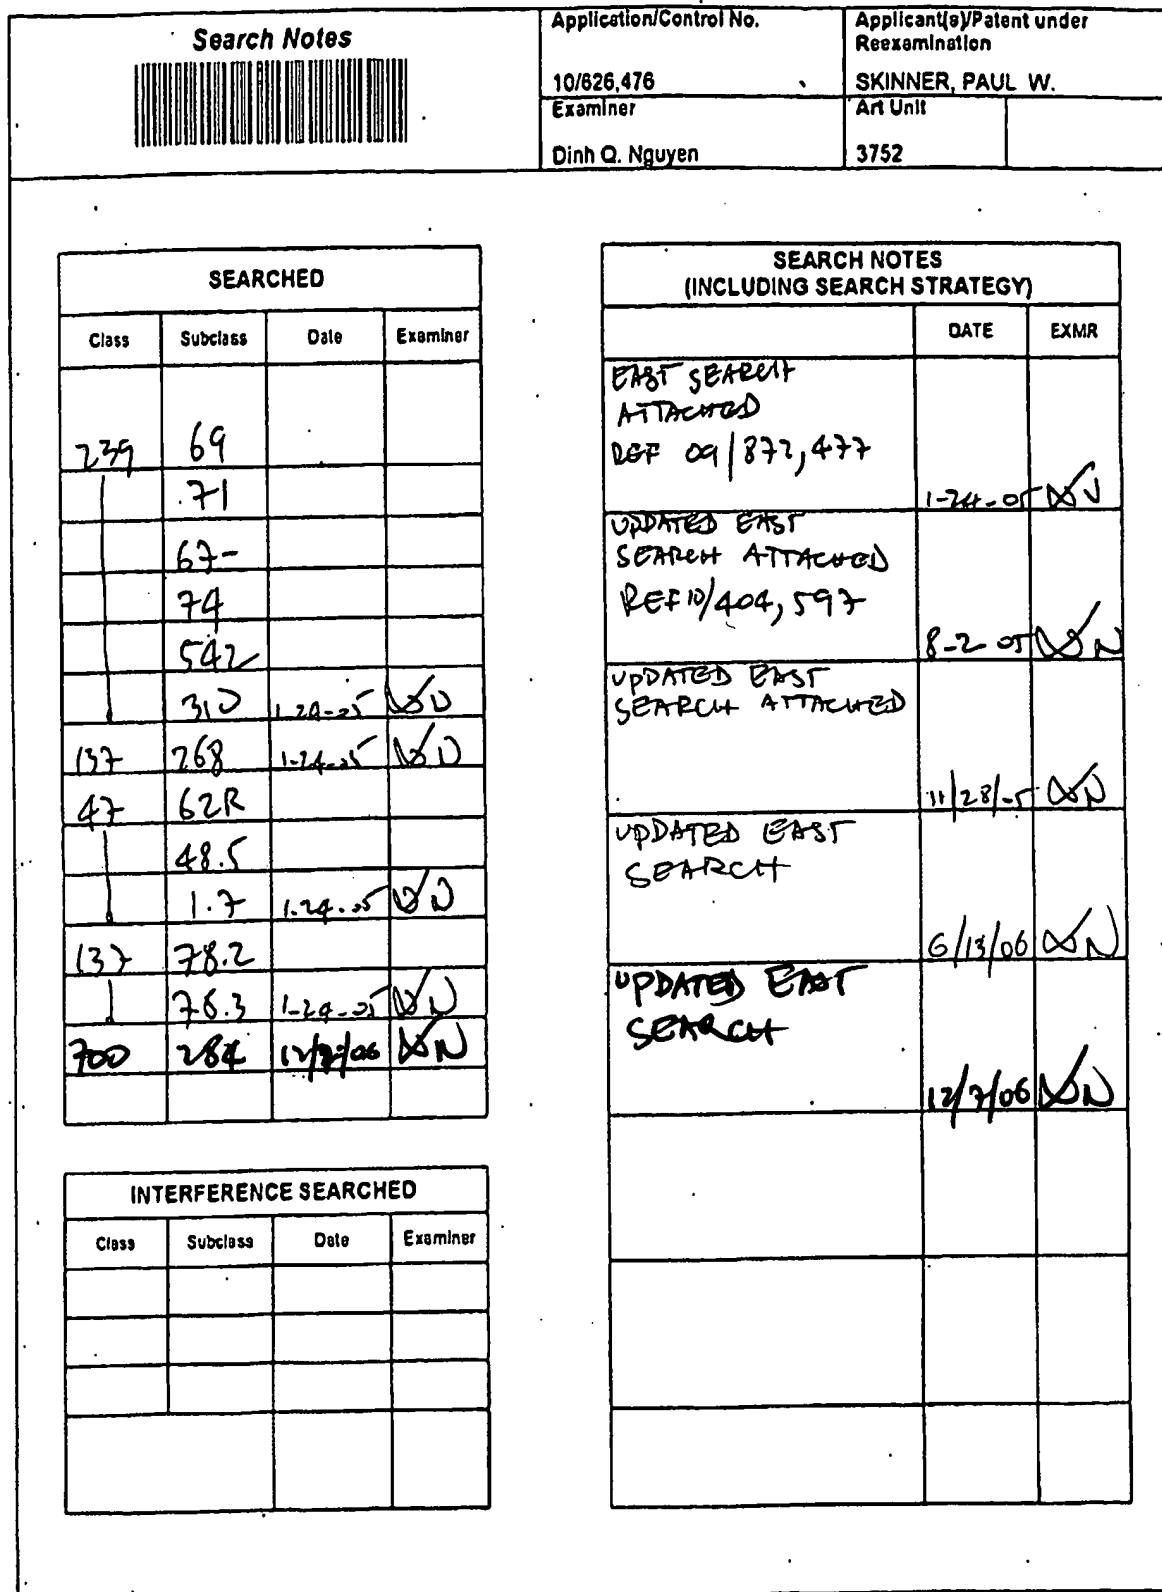 Search Notes
Application/Control No.
10/626,476
Applicant(s)/Patent under
Reexamination
SKINNER, PAUL W.
Examiner
Dinh Q. Nguyen
Art Unit
3752
SEARCHED
Class Subclass Date Examiner
239 69
71
67-
74
542
310 1-24-05 DN
137 268 1-24-05 DN
47 62R
48.5
1.7 1-24-05 DN
137 78.2
78.3 1-24-05 DN
700 284 12/7/06 DN
INTERFERENCE SEARCHED
Class Subclass Date Examiner
SEARCH NOTES
(INCLUDING SEARCH STRATEGY)
DATE EXMR
EAST SEARCH
ATTACHED
REF 09/872,477
1-24-05 DN
UPDATED EAST
SEARCH ATTACHED
REF 10/404,597
8-2-05 DN
UPDATED EAST
SEARCH ATTACHED
11/28/-5 DN
UPDATED EAST
SEARCH
6/13/06 DN
UPDATED EAST
SEARCH
12/7/06 DN